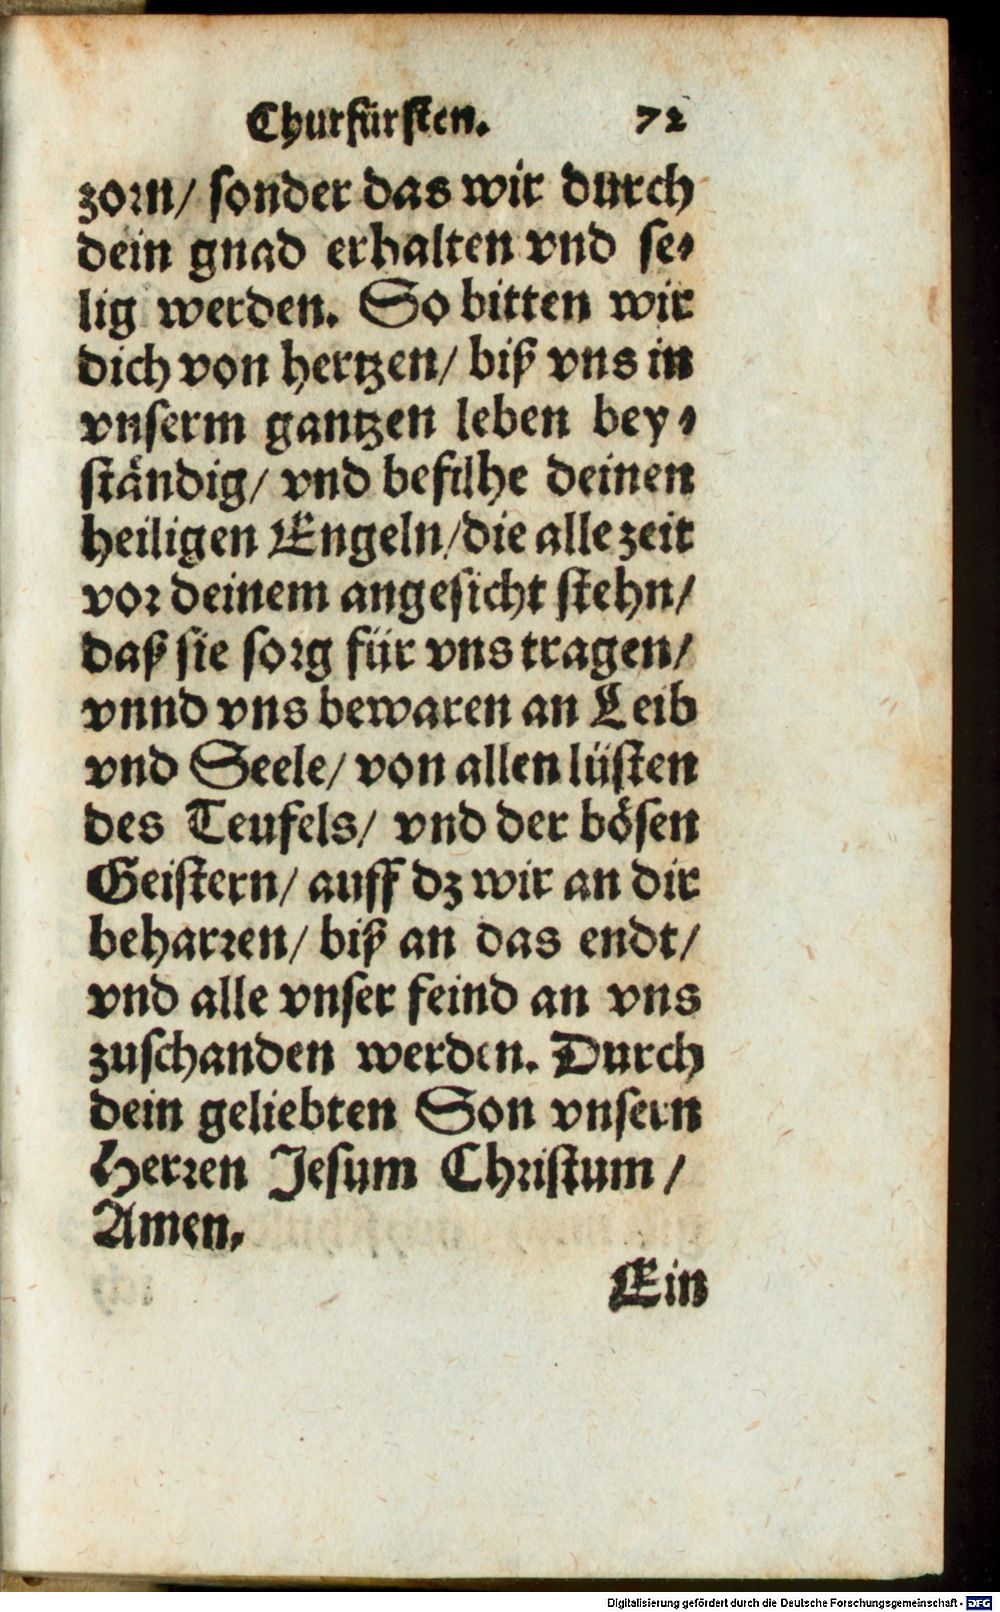 Churfürsten. 72
zorn/ sonder das wir durch
dein gnad erhalten vnd se⸗
lig werden. So bitten wir
dich von hertzen/ biß vns in
vnserm gantzen leben bey⸗
ständig/ vnd befilhe deinen
heiligen Engeln/ die alle zeit
vor deinem angesicht stehn/
daß sie sorg für vns tragen/
vnnd vns bewaren an Leib
vnd Seele/ von allen lüsten
des Teufels/ vnd der bösen
Geistern/ auff dz wir an dir
beharren/ biß an das endt/
vnd alle vnser feind an vns
zuschanden werden. Durch
dein geliebten Son vnsern
Herren Jesum Christum/
Amen.
Ein
Digitalisierung gefördert durch die Deutsche Forschungsgemeinschaft - DFG